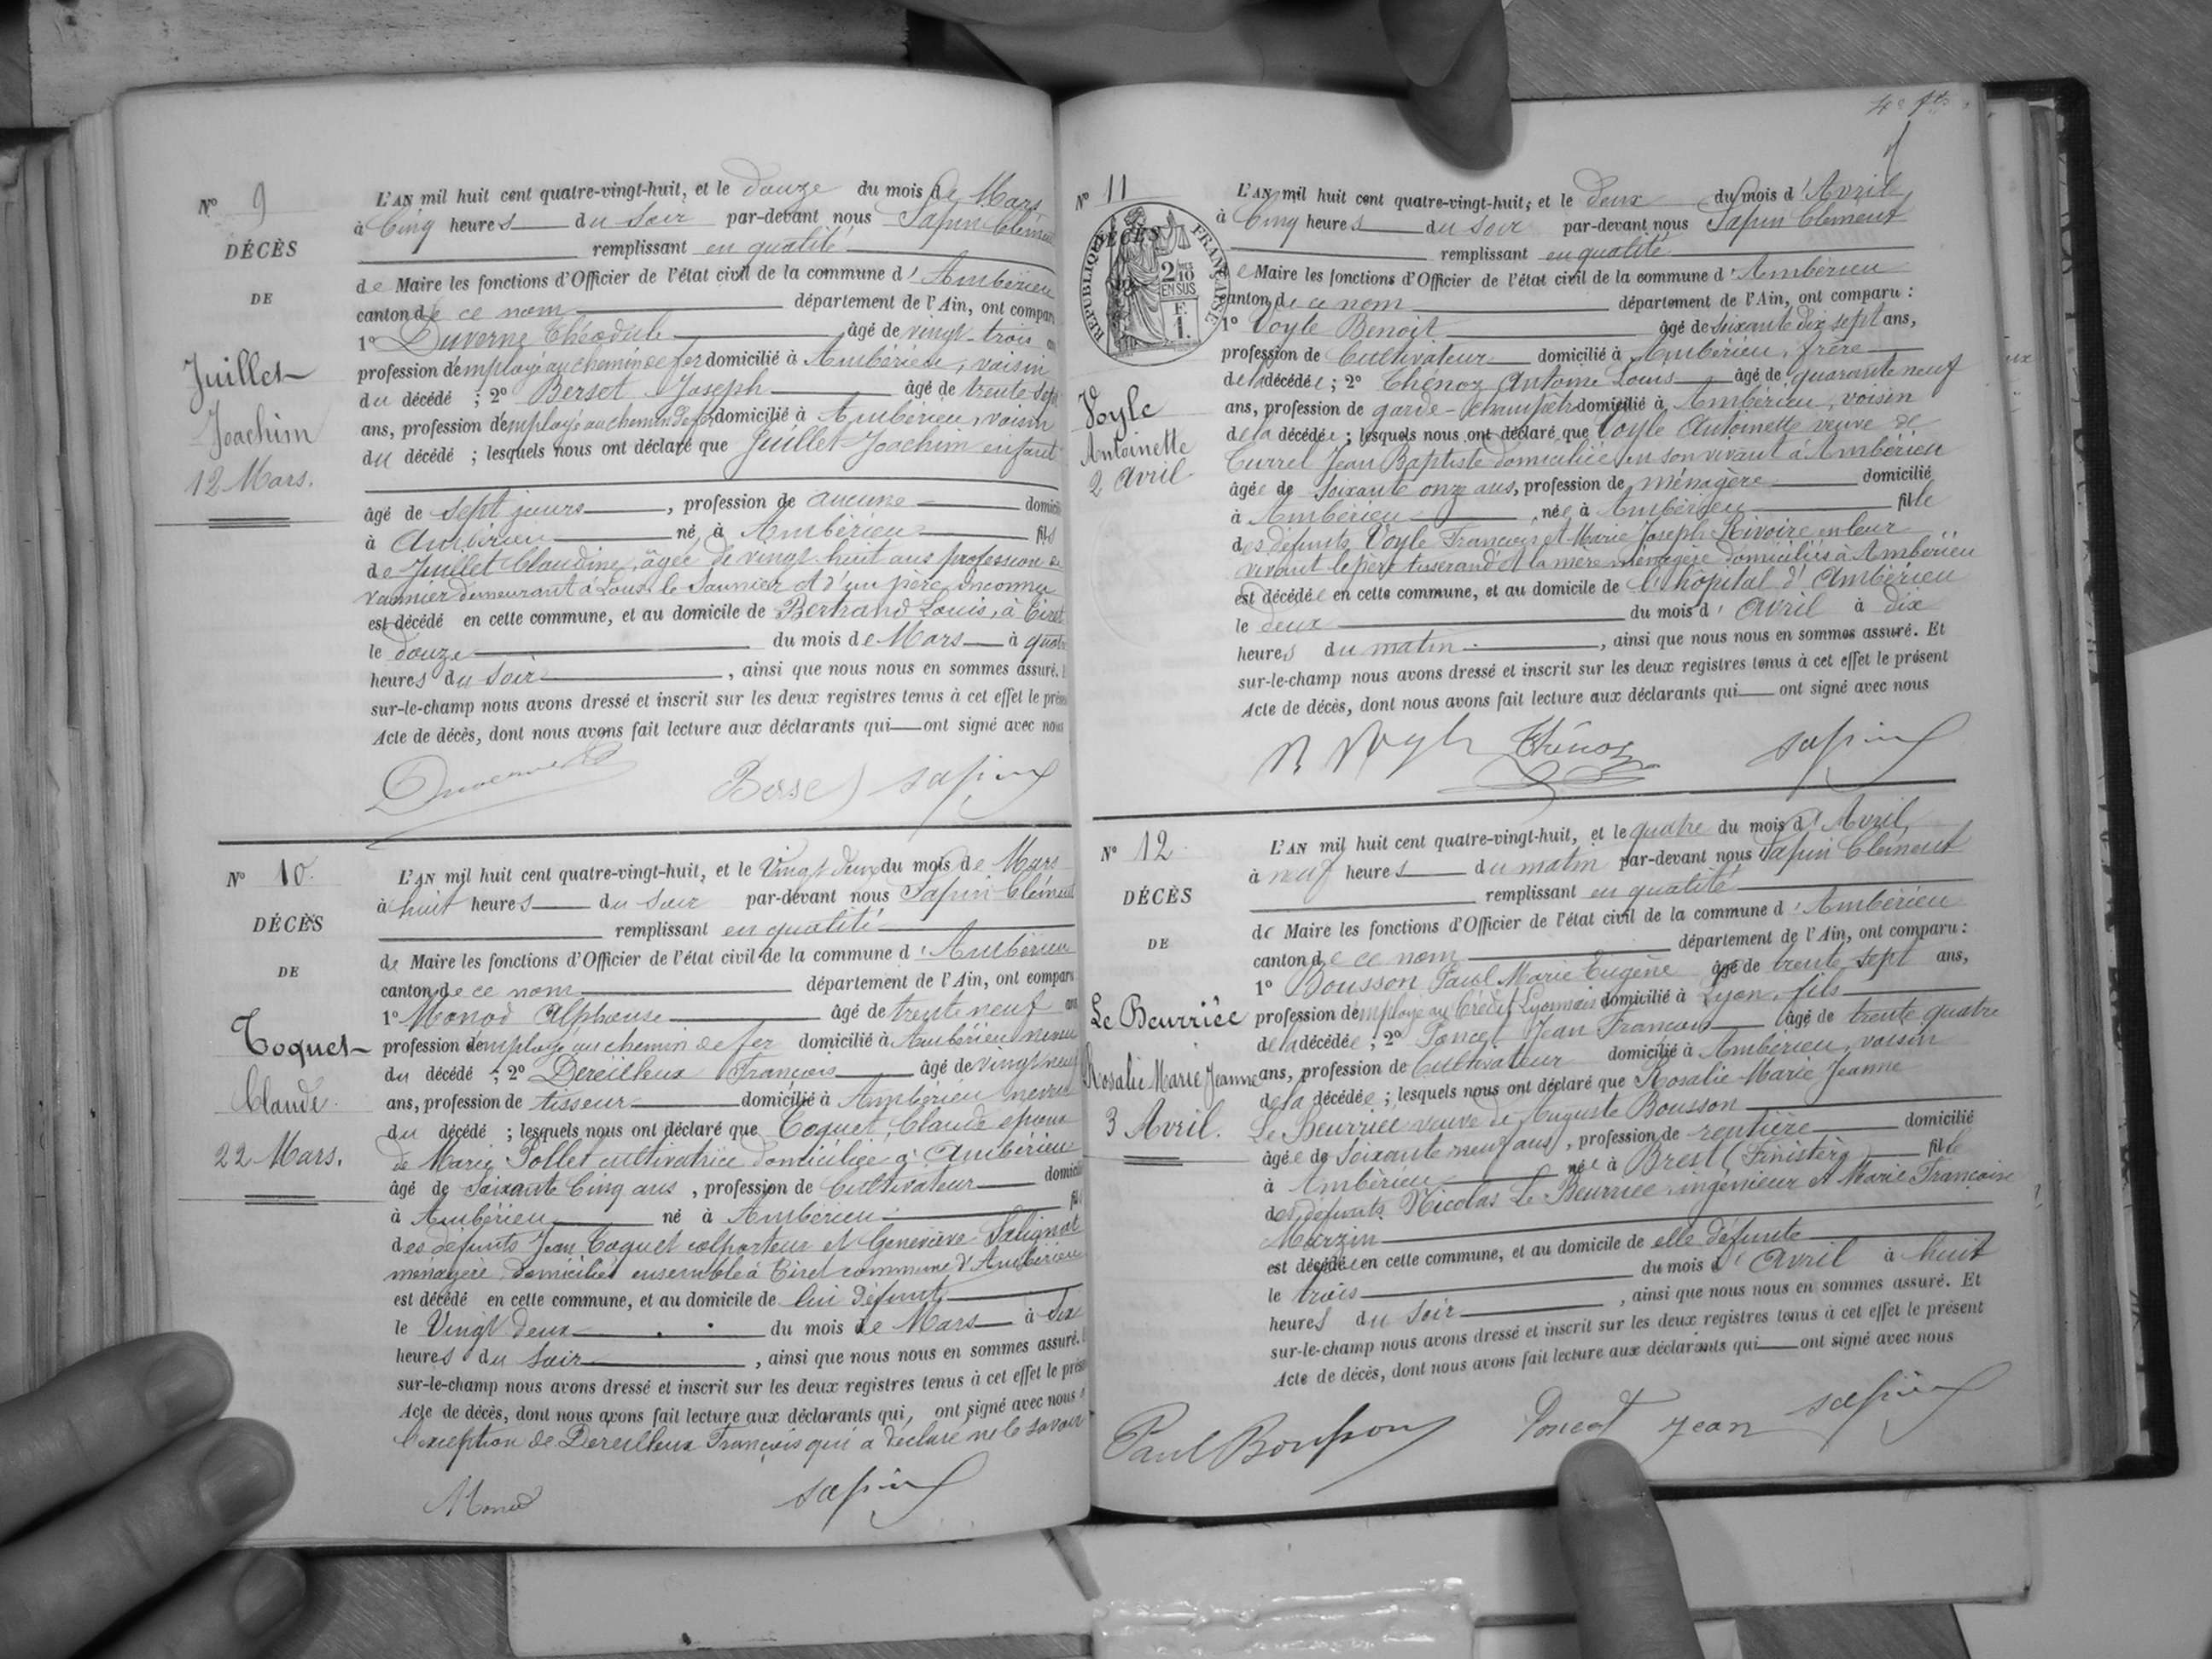 N° 9
DÉCÈS
DE
Juillet
Joachim
12 Mars.
L'AN mil huit cent quatre-vingt-huit, et le douze du mois de Mars
à Cinq heures du soir par-devant nous Sapin Clément
remplissant en qualité
de Maire les fonctions d'Officier de l'état civil de la commune d'Ambérieu
canton de ce nom département de l'Ain, ont comparu
1° Duverne Théodule âgé de vingt-trois
profession d'employé au chemin de fer domicilié à Ambérieu, voisin
du décédé ; 2° Berset Joseph âgé de trente sept
ans, profession d'employé au chemin de fer domicilié à Ambérieu, voisin
du décédé ; lesquels nous ont déclaré que Juillet Joachim enfant
âgé de sept jours, profession de aucune domicilié
à Ambérieu né à Ambérieu fils
de Juillet Claudine, âgée de vingt-huit ans profession de
vannier demeurant à Lons le Saunier et d'un père inconnu
est décédé en cette commune, et au domicile de Bertrand Louis, à Tiret
le douze du mois de Mars à quatre
heures du soir, ainsi que nous nous en sommes assuré.
sur-le-champ nous avons dressé et inscrit sur les deux registres tenus à cet effet le présent
Acte de décès, dont nous avons fait lecture aux déclarants qui ont signé avec nous
Berset Sapin
N° 10.
DÉCÈS
DE
Toquet
Claude.
22 Mars.
L'AN mil huit cent quatre-vingt-huit, et le Vingt deux du mois de Mars
à huit heures du soir par-devant nous Sapin Clément
remplissant en qualité
de Maire les fonctions d'Officier de l'état civil de la commune d'Ambérieu
canton de ce nom département de l'Ain, ont comparu
1° Monod Alphonse âgé de trente neuf ans
profession d'employé au chemin de fer domicilié à Ambérieu neveu
du décédé ; 2° Dereilleux François âgé de vingt neuf
ans, profession de tisseur domicilié à Ambérieu neveu
du décédé ; lesquels nous ont déclaré que Toquet, Claude époux
de Marie Pollet cultivatrice domiciliée à Ambérieu
âgé de Soixante Cinq ans, profession de Cultivateur domicilié
à Ambérieu né à Ambérieu fils
des défunts Jean Toquet colporteur et Geneviève Salignat
ménagère, domiciliés ensemble à Tiret commune d'Ambérieu
est décédé en cette commune, et au domicile de lui défunt
le Vingt deux du mois de Mars à six
heures du soir, ainsi que nous nous en sommes assuré.
sur-le-champ nous avons dressé et inscrit sur les deux registres tenus à cet effet le présent
Acte de décès, dont nous avons fait lecture aux déclarants qui, ont signé avec nous à
l'exception de Dereilleux François qui a déclaré ne le savoir
Monod Sapin
N° 11
DÉCÈS
RÉPUBLIQUE FRANÇAISE
2/10 EN SUS
F. 1.
Voyle
Antoinette
2 Avril
L'AN mil huit cent quatre-vingt-huit, et le deux du mois d'Avril
à Cinq heures du soir par-devant nous Sapin Clément
remplissant en qualité
de Maire les fonctions d'Officier de l'état civil de la commune d'Ambérieu
canton de ce nom département de l'Ain, ont comparu :
1° Voyle Benoit âgé de soixante dix sept ans,
profession de Cultivateur domicilié à Ambérieu, frère
de la décédée ; 2° Thénoz Antoine Louis âgé de quarante neuf
ans, profession de garde-champêtre domicilié à Ambérieu, voisin
de la décédée ; lesquels nous ont déclaré que Voyle Antoinette veuve de
Currel Jean Baptiste domiciliée en son vivant à Ambérieu
âgée de soixante onze ans, profession de ménagère domicilié
à Ambérieu, née à Ambérieu fille
des défunts Voyle François et Marie Joseph Rivoire en leur
vivant le père tisserand et la mère ménagère domiciliés à Ambérieu
est décédée en cette commune, et au domicile de l'hôpital d'Ambérieu
le deux du mois d'avril à dix
heures du matin, ainsi que nous nous en sommes assuré. Et
sur-le-champ nous avons dressé et inscrit sur les deux registres tenus à cet effet le présent
Acte de décès, dont nous avons fait lecture aux déclarants qui ont signé avec nous
B Voyle Thénoz Sapin
N° 12
DÉCÈS
DE
Le Beurriée
Rosalie Marie Jeanne
3 Avril.
L'AN mil huit cent quatre-vingt-huit, et le quatre du mois d'Avril,
à neuf heures du matin par-devant nous Sapin Clément
remplissant en qualité
de Maire les fonctions d'Officier de l'état civil de la commune d'Ambérieu
canton de ce nom département de l'Ain, ont comparu :
1° Bousson Paul Marie Eugène âgé de trente sept ans,
profession d'employé au Crédit Lyonnais domicilié à Lyon, fils
de la décédée ; 2° Poncet Jean François âgé de trente quatre
ans, profession de Cultivateur domicilié à Ambérieu, voisin
de la décédée ; lesquels nous ont déclaré que Rosalie Marie Jeanne
Le Beurriée veuve de Auguste Bousson
âgée de soixante neuf ans, profession de rentière domicilié
à Ambérieu née à Brest (Finistère) fille
des défunts Nicolas Le Beurriée, ingénieur et Marie Françoise
Marzin
est décédée en cette commune, et au domicile de elle défunte
le trois du mois d'avril à huit
heures du soir, ainsi que nous nous en sommes assuré. Et
sur-le-champ nous avons dressé et inscrit sur les deux registres tenus à cet effet le présent
Acte de décès, dont nous avons fait lecture aux déclarants qui ont signé avec nous
Paul Bousson Poncet Jean Sapin